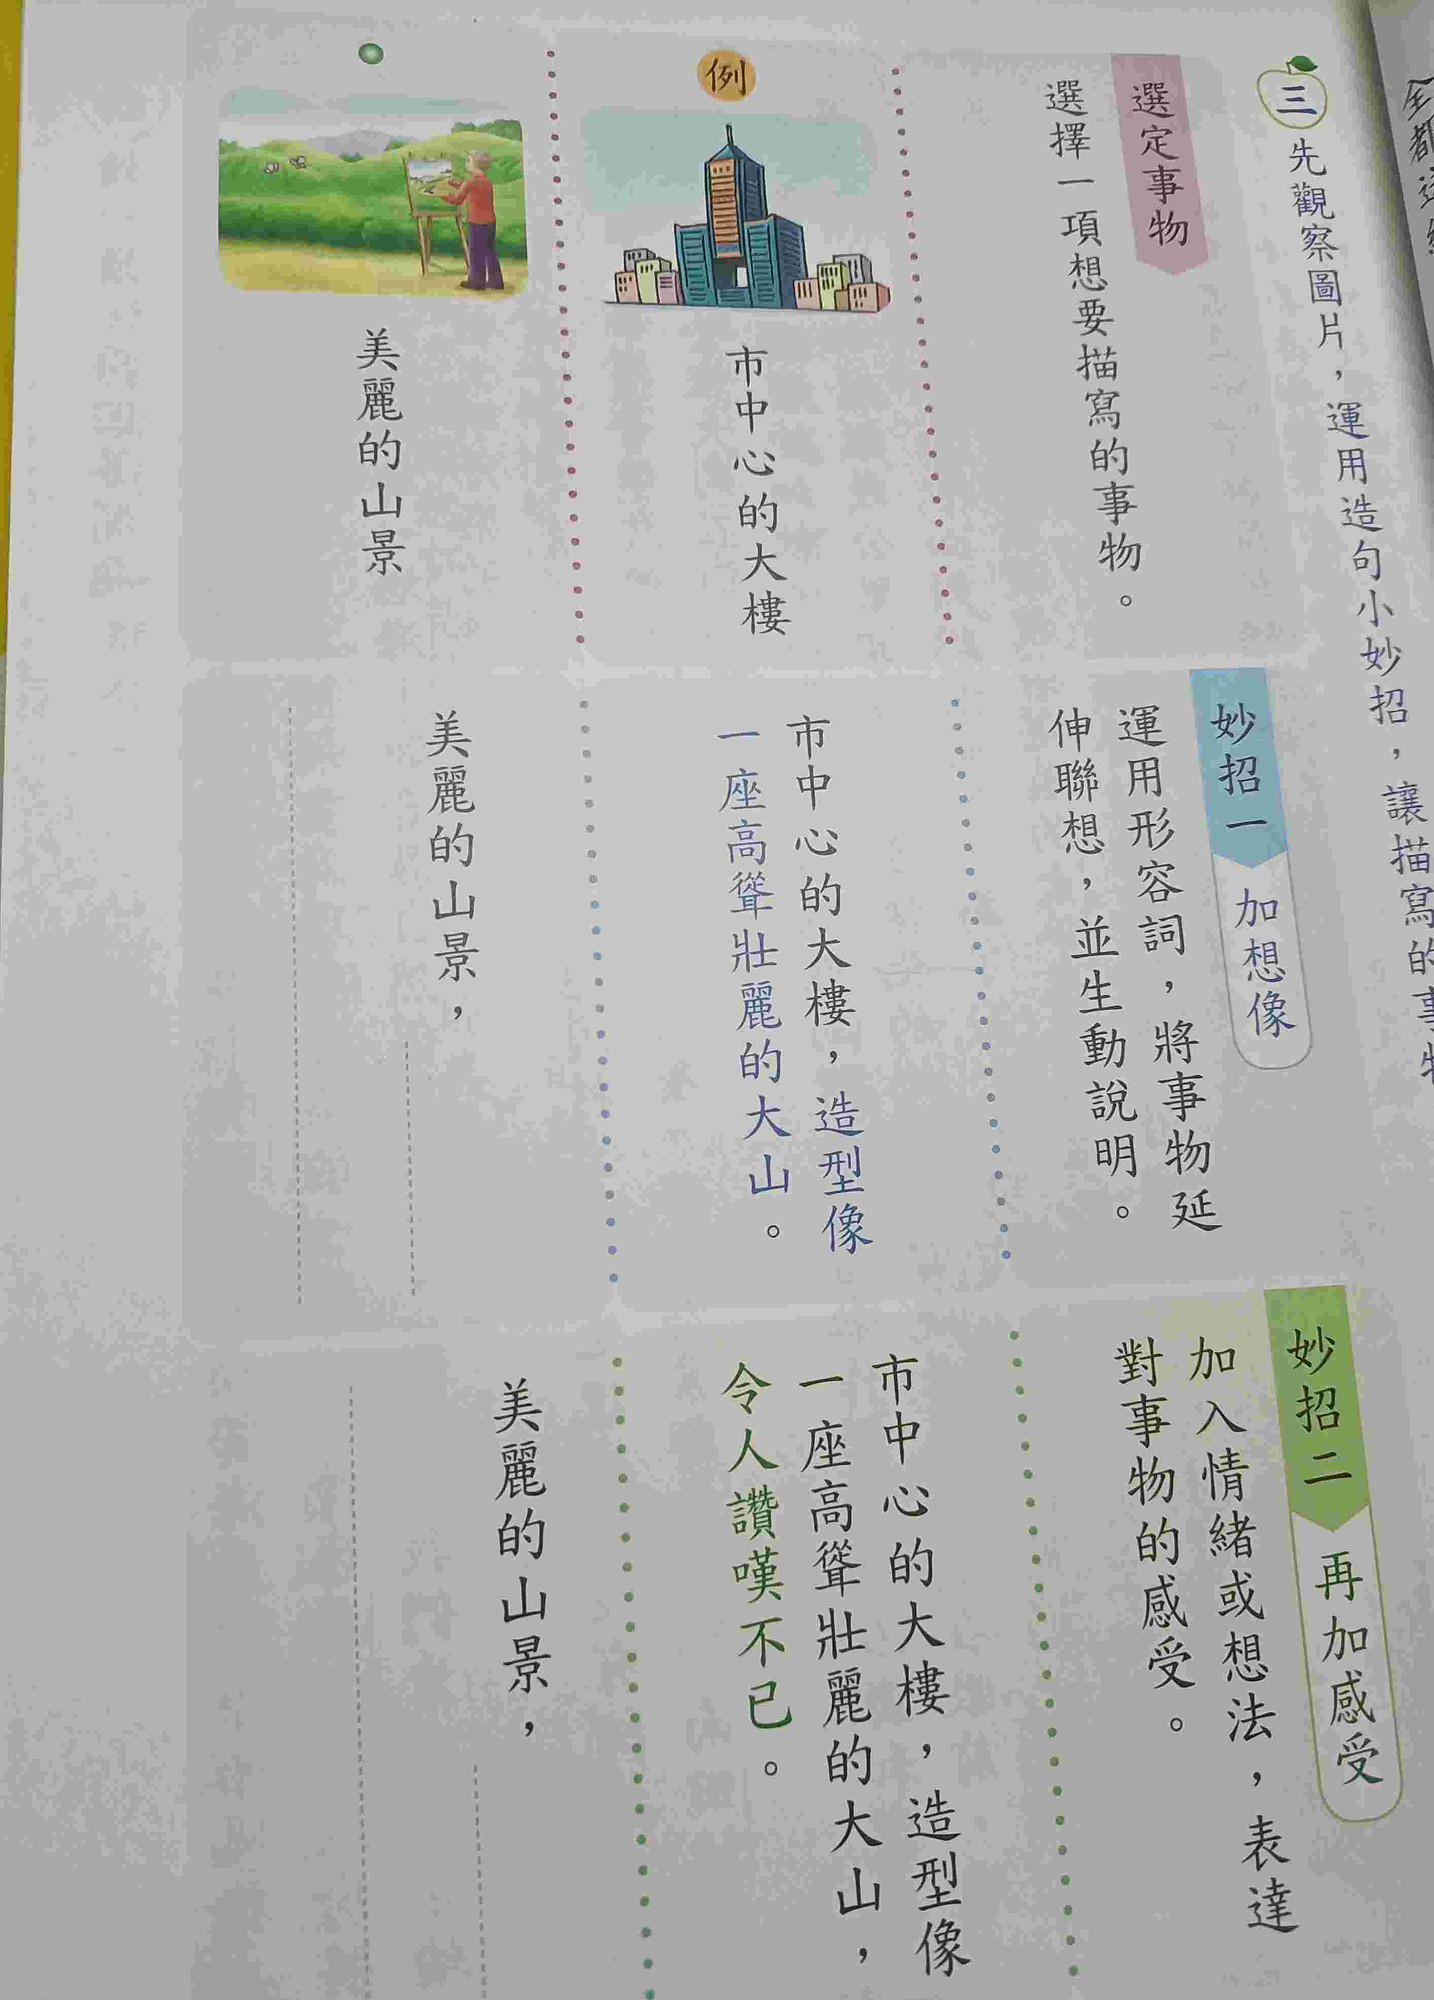 三 先觀察圖片，運用造句小妙招，讓描寫的事物
選定事物
選擇一項想要描寫的事物。
妙招一 加想像
運用形容詞，將事物延
伸聯想，並生動說明。
妙招二 再加感受
加入情緒或想法，表達
對事物的感受。
例
市中心的大樓
市中心的大樓，造型像
一座高聳壯麗的大山。
市中心的大樓，造型像
一座高聳壯麗的大山，
令人讚嘆不已。
美麗的山景
美麗的山景，
美麗的山景，